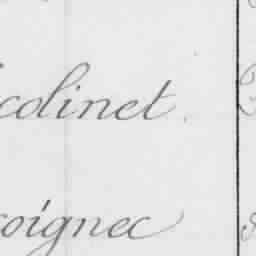 colinet
oignec